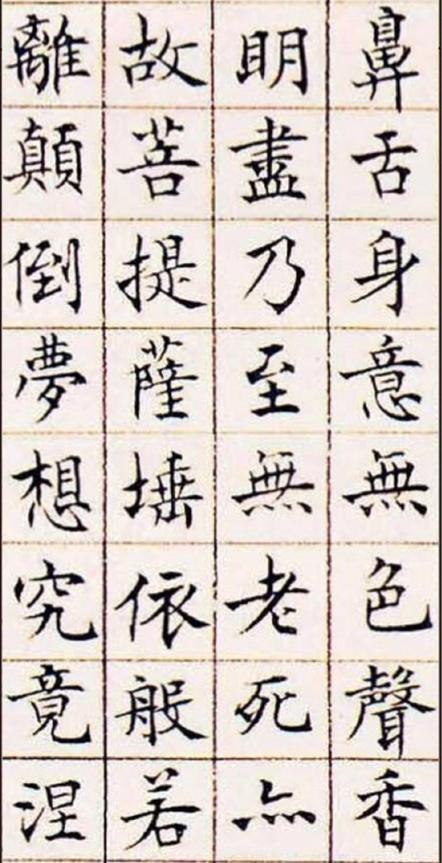 鼻舌身意無色聲香
明盡乃至無老死亦
故菩提薩埵依般若
離顛倒夢想究竟涅